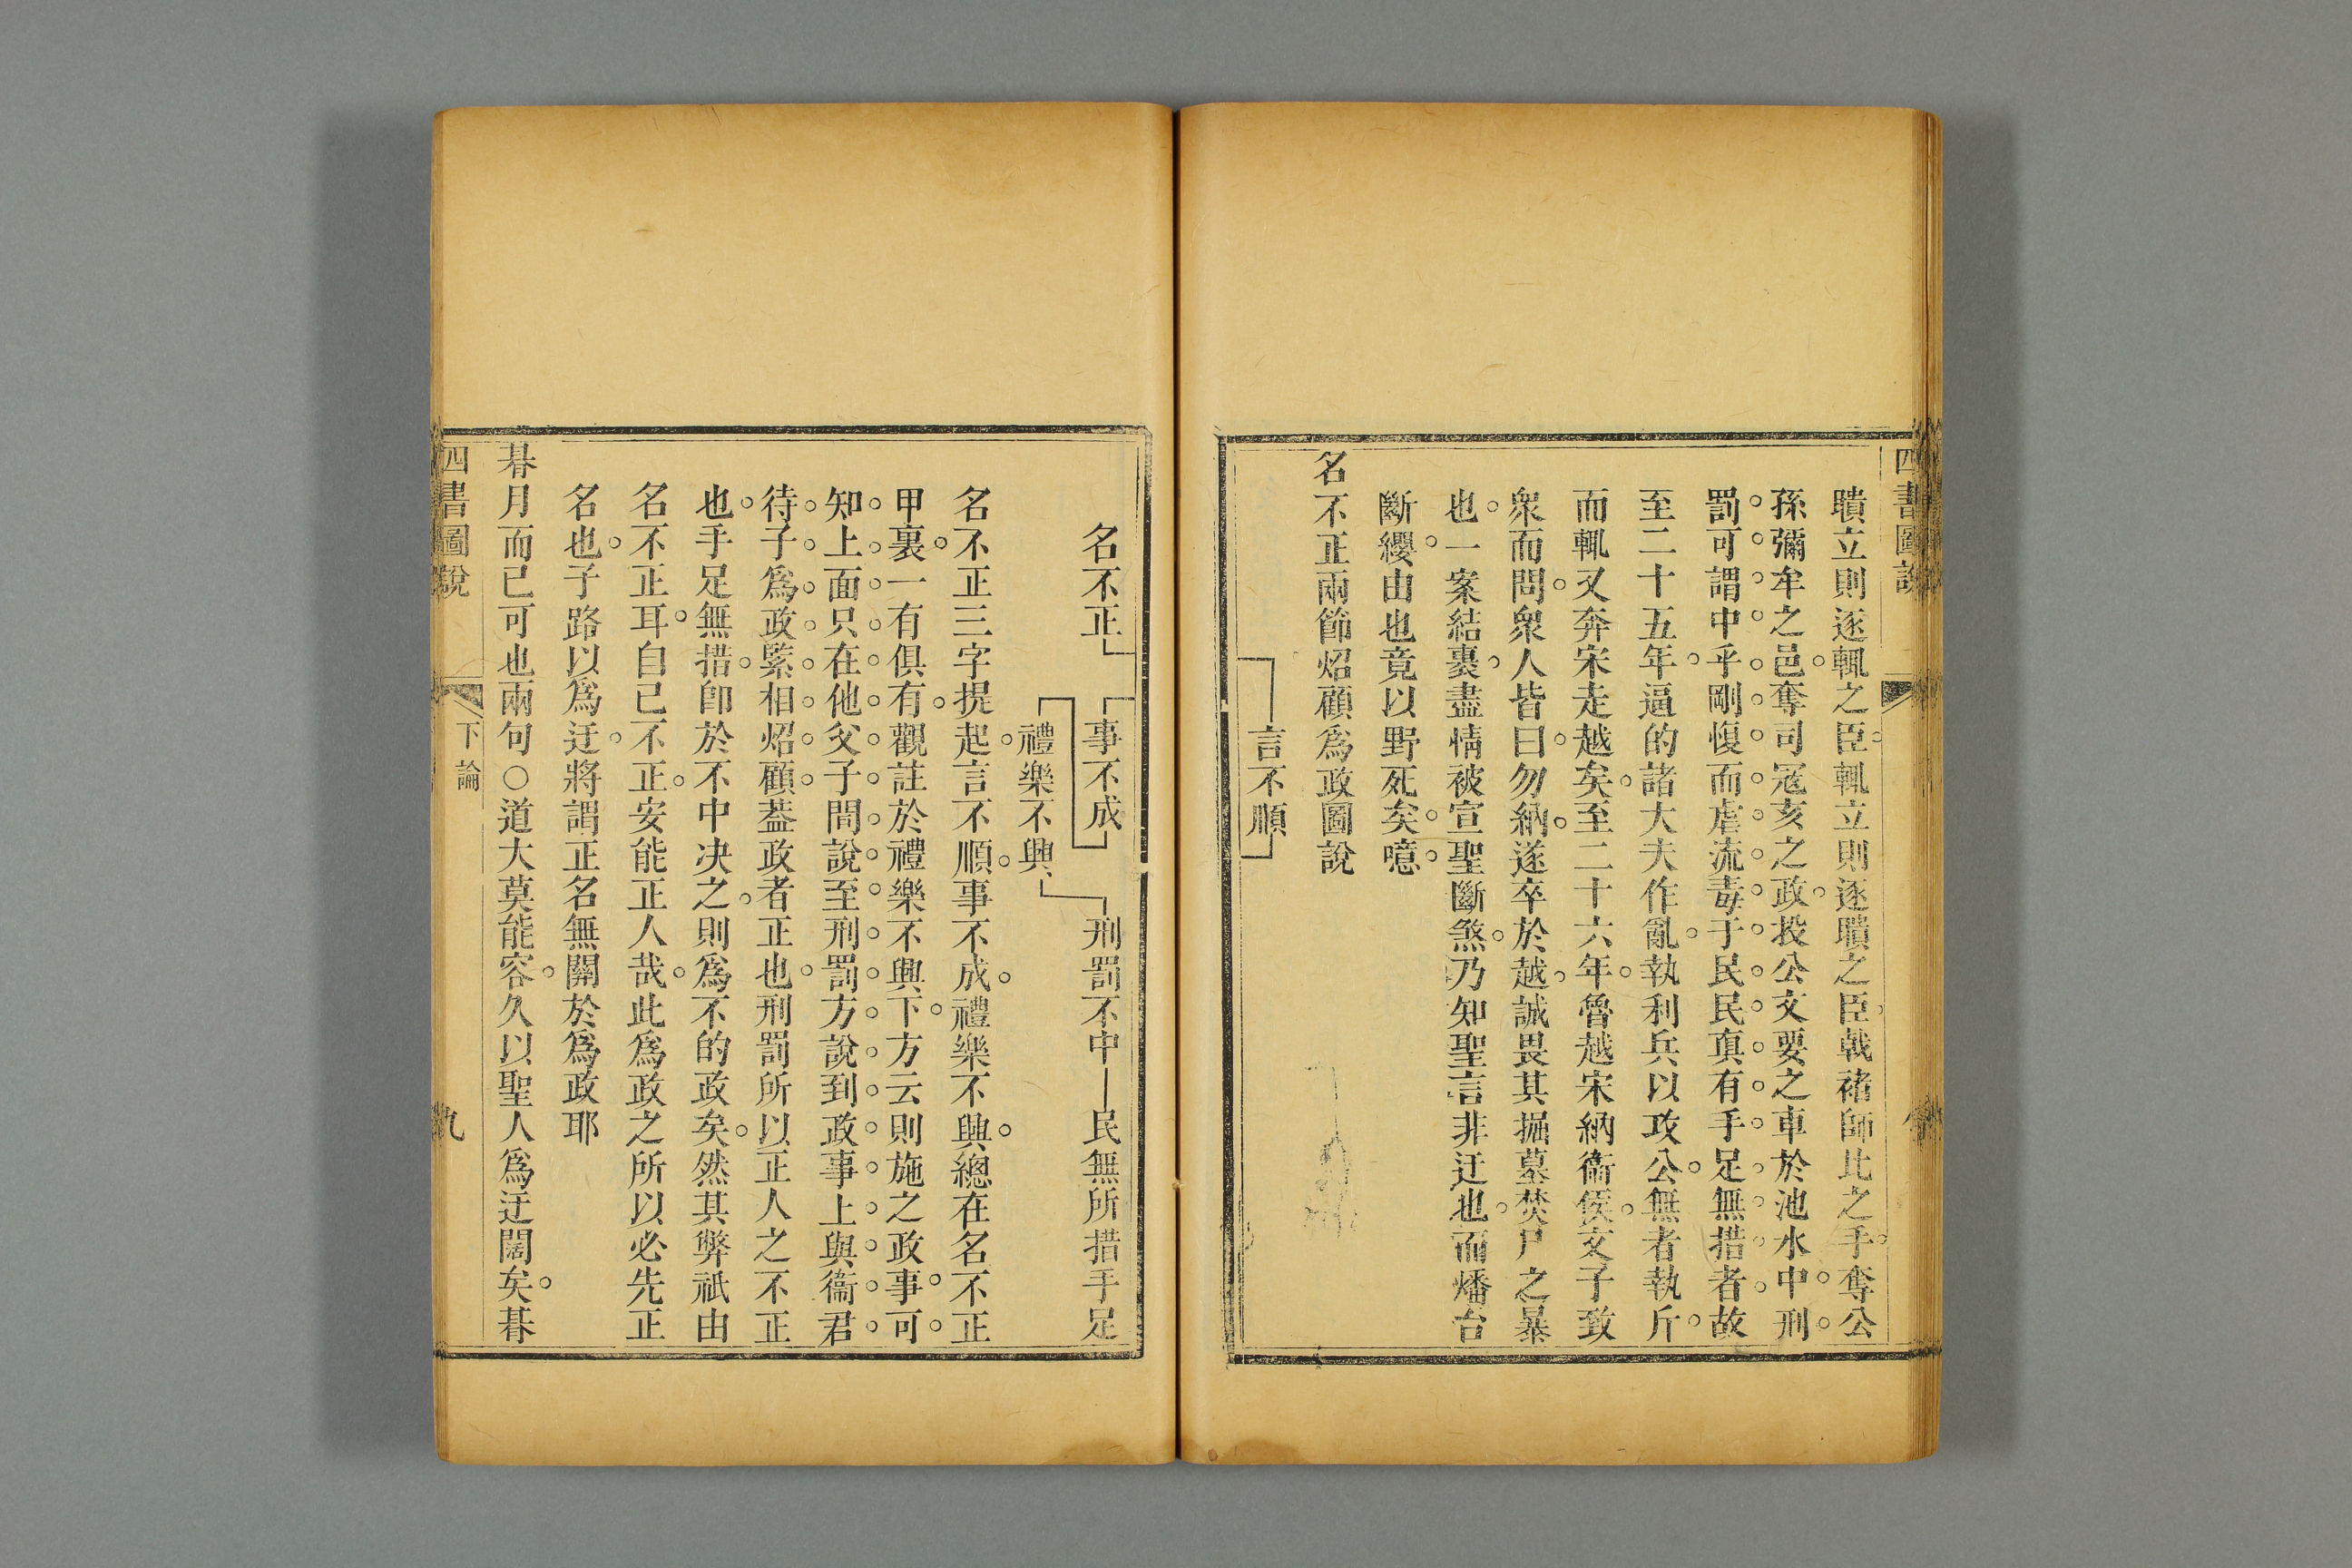 四書圖說
聵立則逐輒之臣輒立則逐聵之臣戟褚師比之手奪公
孫彌牟之邑奪司冦亥之政投公文要之車於池水中刑
罰可謂中乎剛愎而虐流毒于民民真有手足無措者故
至二十五年逼的諸大夫作亂執利兵以攻公無者執斤
而輒又奔宋走越矣至二十六年魯越宋納衞侯文子致
衆而問衆人皆曰勿納遂卒於越誠畏其掘墓焚尸之暴
也一案結裹盡情被宣聖斷煞乃知聖言非迂也而燔台
斷纓由也竟以野死矣噫
名不正兩節炤顧爲政圖說
言不順
名不正 事不成 刑罰不中 民無所措手足
禮樂不興
名不正三字提起言不順事不成禮樂不興總在名不正
甲裏一有俱有觀註於禮樂不興下方云則施之政事可
知上面只在他父子間說至刑罰方說到政事上與衞君
待子爲政緊相炤顧葢政者正也刑罰所以正人之不正
也手足無措卽於不中决之則爲不的政矣然其弊祇由
名不正耳自己不正安能正人哉此爲政之所以必先正
名也子路以爲迂將謂正名無關於爲政耶
朞月而已可也兩句○道大莫能容久以聖人爲迂闊矣朞
四書圖說 下論 九